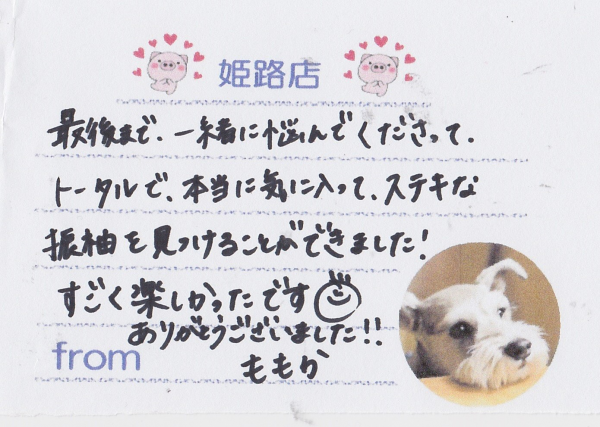 姫路店
最後まで、一緒に悩んでくださって、
トータルで、本当に気に入って、ステキな
振袖を見つけることができました!
すごく楽しかったです
ありがとうございました!!
from
ももか